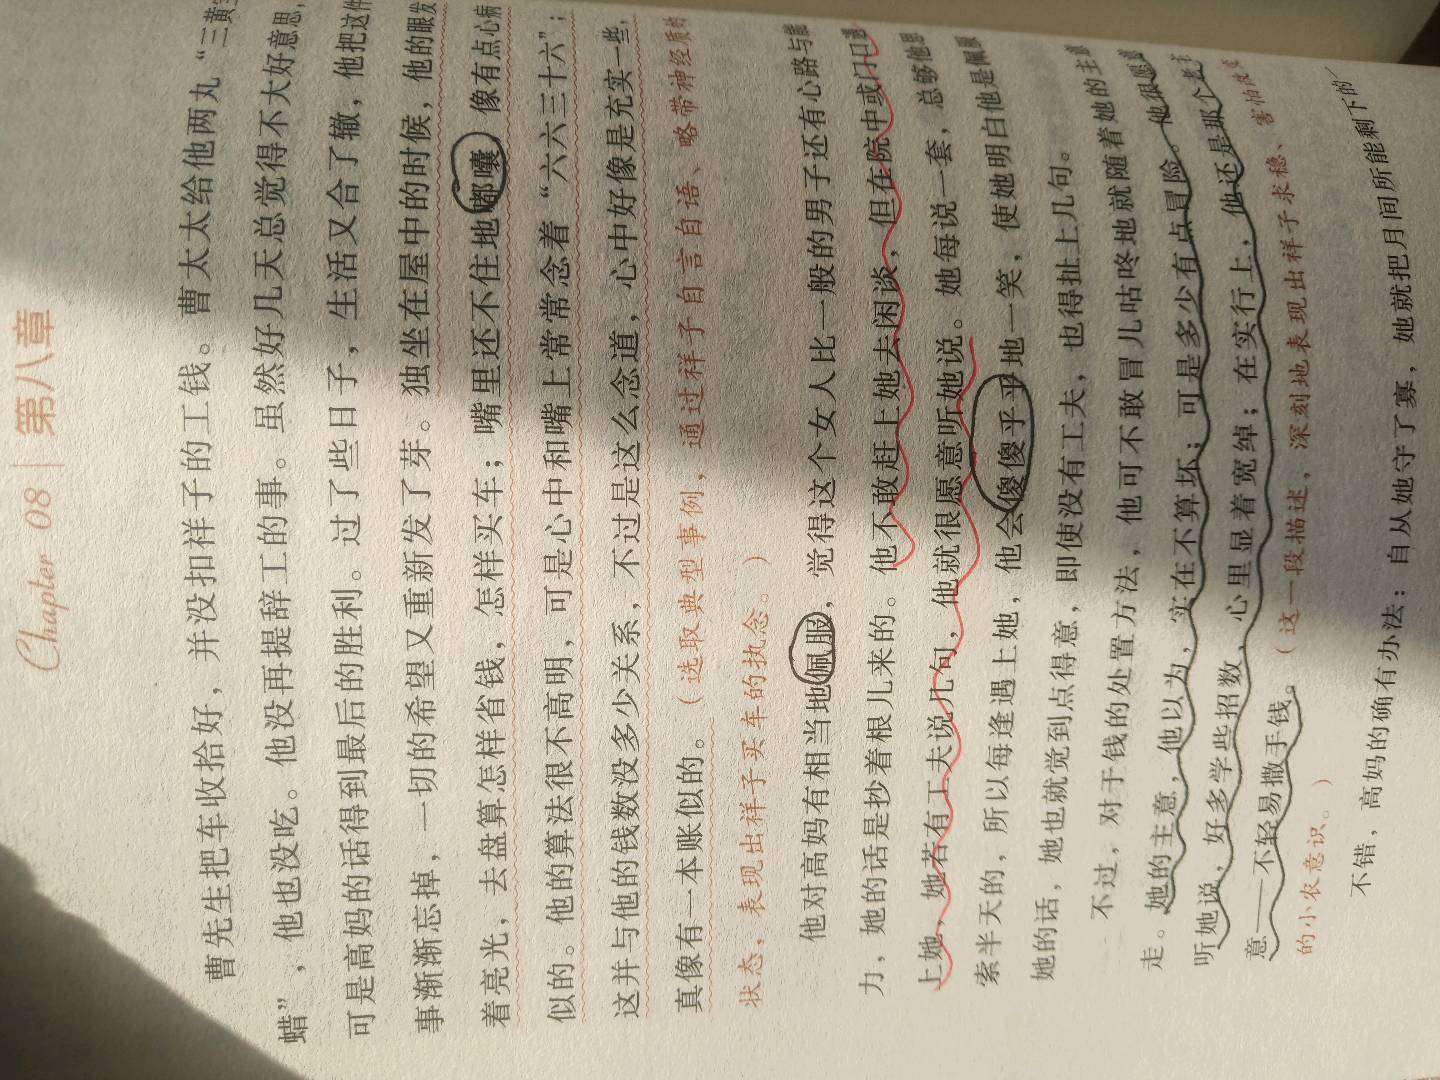 Chapter 08 | 第八章
曹先生把车收拾好，并没扣祥子的工钱。曹太太给他两丸“三黄宝
蜡”，他也没吃。他没再提辞工的事。虽然好几天总觉得不大好意思，
可是高妈的话得到最后的胜利。过了些日子，生活又合了辙，他把这件
事渐渐忘掉，一切的希望又重新发了芽。独坐在屋中的时候，他的眼发
着亮光，去盘算怎样省钱，怎样买车；嘴里还不住地嘟囔，像有点心病
似的。他的算法很不高明，可是心中和嘴上常常念着“六六三十六”；
这并与他的钱数没多少关系，不过是这么念道，心中好像是充实一些，
真像有一本账似的。（选取典型事例，通过祥子自言自语、略带神经质的
状态，表现出祥子买车的执念。）
他对高妈有相当地佩服，觉得这个女人比一般的男子还有心路与能
力，她的话是抄着根儿来的。他不敢赶上她去闲谈，但在院中或门口遇
上她，她若有工夫说几句，他就很愿意听她说。她每说一套，总够他思
索半天的，所以每逢遇上她，他会傻傻乎乎地一笑，使她明白他是佩服
她的话，她也就觉到点得意，即使没有工夫，也得扯上几句。
不过，对于钱的处置方法，他可不敢冒儿咕咚地就随着她的主意
走。她的主意，他以为，实在不算坏；可是多少有点冒险。他很愿意
听她说，好多学些招数，心里显着宽绰；在实行上，他还是那个老主
意——不轻易撒手钱。（这一段描述，深刻地表现出祥子求稳、害怕改变
的小农意识。）
不错，高妈的确有办法：自从她守了寡，她就把月间所能剩下的一